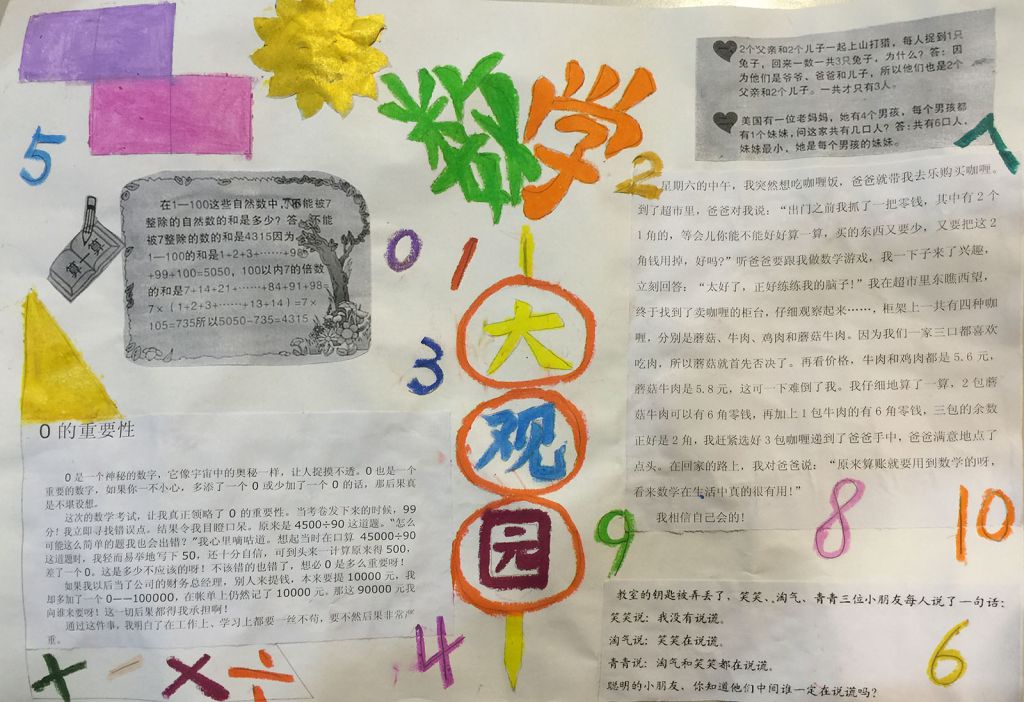 数学
大
观
园
2个父亲和2个儿子一起上山打猎，每人捉到1只
兔子，回来一数一共3只兔子，为什么？答：因
为他们是爷爷、爸爸和儿子，所以他们也是2个
父亲和2个儿子。一共才只有3人。
美国有一位老妈妈，她有4个男孩，每个男孩都
有1个妹妹，问这家共有几口人？答：共有6口人，
妹妹最小，她是每个男孩的妹妹。
5
7
2
0
1
3
算一算
在1—100这些自然数中，不能被7
整除的自然数的和是多少？答：不能
被7整除的数的和是4315因为
1—100的和是1+2+3+……+98
+99+100=5050，100以内7的倍数
的和是7+14+21+……+84+91+98=
7×（1+2+3+……+13+14）=7×
105=735所以5050-735=4315
星期六的中午，我突然想吃咖喱饭，爸爸就带我去乐购买咖喱。
到了超市里，爸爸对我说：“出门之前我抓了一把零钱，其中有 2 个
1 角的，等会儿你能不能好好算一算，买的东西又要少，又要把这 2
角钱用掉，好吗？”听爸爸要跟我做数学游戏，我一下子来了兴趣，
立刻回答：“太好了，正好练练我的脑子！”我在超市里东瞧西望，
终于找到了卖咖喱的柜台，仔细观察起来……，柜架上一共有四种咖
喱，分别是蘑菇、牛肉、鸡肉和蘑菇牛肉。因为我们一家三口都喜欢
吃肉，所以蘑菇就首先否决了。再看价格，牛肉和鸡肉都是 5.6 元，
蘑菇牛肉是 5.8 元，这可一下难倒了我。我仔细地算了一算，2 包蘑
菇牛肉可以有 6 角零钱，再加上 1 包牛肉的有 6 角零钱，三包的余数
正好是 2 角，我赶紧选好 3 包咖喱递到了爸爸手中，爸爸满意地点了
点头。在回家的路上，我对爸爸说：“原来算账就要用到数学的呀，
看来数学在生活中真的很有用！”
我相信自己会的！
0 的重要性
0 是一个神秘的数字，它像宇宙中的奥秘一样，让人捉摸不透。0 也是一个
重要的数字，如果你一不小心，多添了一个 0 或少加了一个 0 的话，那后果真
是不堪设想。
这次的数学考试，让我真正领略了 0 的重要性。当考卷发下来的时候，99
分！我立即寻找错误点。结果令我目瞪口呆。原来是 4500÷90 这道题。“怎么
可能这么简单的题我也会出错？”我心里嘀咕道。想起当时在口算 45000÷90
这道题时，我轻而易举地写下 50，还十分自信，可到头来一计算原来得 500，
差了一个 0。这是多少不应该的呀！不该错的也错了，想必 0 是多么重要呀！
如果我以后当了公司的财务总经理，别人来提钱，本来要提 10000 元，我
却多加了一个 0——100000，在帐单上仍然记了 10000 元。那这 90000 元我
向谁来要呀！这一切后果都得我承担啊！
通过这件事，我明白了在工作上、学习上都要一丝不苟，要不然后果非常严
重。
9
8
10
4
6
+ - × ÷
教室的钥匙被弄丢了，笑笑、淘气、青青三位小朋友每人说了一句话：
笑笑说：我没有说谎。
淘气说：笑笑在说谎。
青青说：淘气和笑笑都在说谎。
聪明的小朋友，你知道他们中间谁一定在说谎吗？